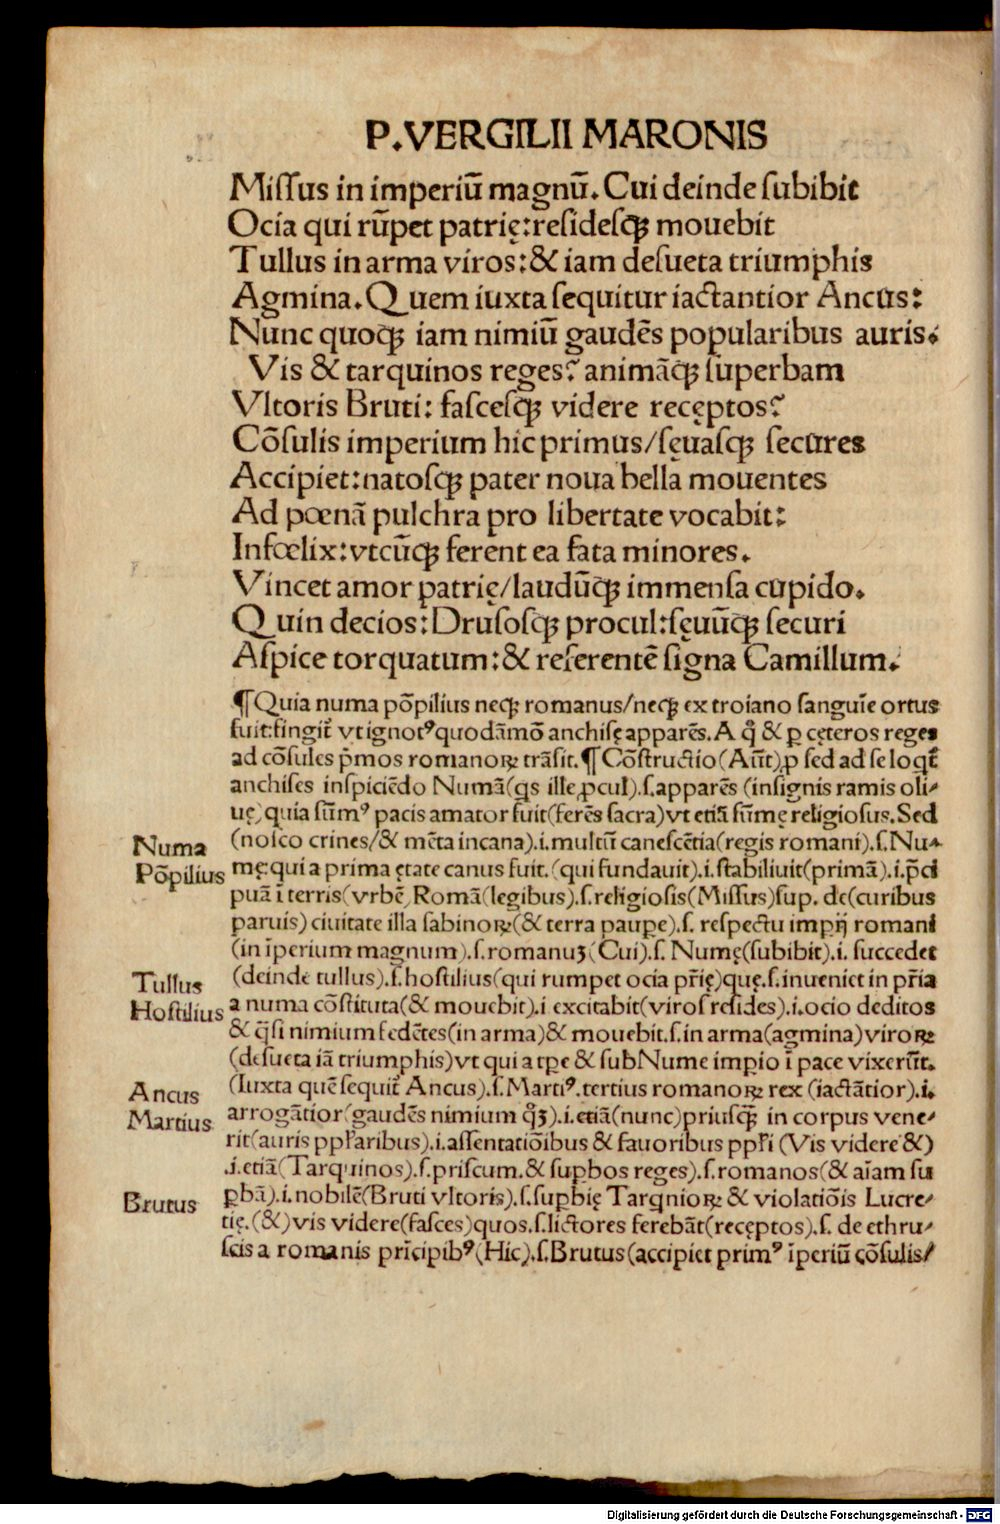 P.VERGILII MARONIS
Miſſus in imperiū magnū. Cui deinde ſubibit
Ocia qui rūpet patrię: reſideſqꝫ mouebit
Tullus in arma viros: & iam deſueta triumphis
Agmina. Quem iuxta ſequitur iactantior Ancus:
Nunc quoqꝫ iam nimiū gaudēs popularibus auris.
Vis & tarquinos reges? animāqꝫ ſuperbam
Vltoris Bruti: faſceſqꝫ videre recęptos?
Cōſulis imperium hic primus/ſęuaſqꝫ ſecures
Accipiet: natoſqꝫ pater noua bella mouentes
Ad pœnā pulchra pro libertate vocabit:
Infœlix: vtcūqꝫ ferent ea fata minores.
Vincet amor patrię/laudūqꝫ immenſa cupido.
Quin decios: Druſoſqꝫ procul: ſęuūqꝫ ſecuri
Aſpice torquatum: & referentē ſigna Camillum.
¶ Quia numa pōpilius neqꝫ romanus/neqꝫ ex troiano ſanguīe ortus
fuit: fingit̄ vt ignotꝰ quodāmō anchiſę apparēs. A qͦ & ꝑ cęteros reges
ad cōſules p̄mos romanoꝝ trāſit. ¶ Cōſtructio (Aūt) ꝓ ſed ad ſe loqt̄
anchiſes inſpiciēdo Numā (qs ille ꝓcul).ſ. apparēs (inſignis ramis oli-
uę) quia ſūmꝰ pacis amator fuit (ferēs ſacra) vt etiā ſūmę religioſus. Sed
(noſco crines/& mēta incana).i. multū caneſcētia (regis romani).ſ. Nu-
mę qui a prima ętate canus fuit. (qui fundauit).i. ſtabiliuit (primā).i. p̄ci
puā ī terris (vrbē) Romā (legibus).ſ. religioſis (Miſſus) ſup. de (curibus
paruis) ciuitate illa ſabinoꝝ (& terra paupe).ſ. reſpectu impij romani
(in īperium magnum).ſ. romanuꝫ (Cui).ſ. Numę (ſubibit).i. ſuccedet
(deinde tullus).ſ. hoſtilius (qui rumpet ocia pr̄ię) quę.ſ. inueniet in pr̄ia
a numa cōſtituta (& mouebit).i excitabit (viroſ reſides).i. ocio deditos
& qͣſi nimium ſedētes (in arma) & mouebit.ſ. in arma (agmina) viroꝝ
(deſueta iā triumphis) vt qui a tpe & ſub Nume impio ī pace vixerūt.
(Iuxta quē ſequit̄ Ancus).ſ. Martiꝰ. tertius romanoꝝ rex (iactātior).i.
arrogātior (gaudēs nimium qͦꝫ).i. etiā (nunc) priuſqꝫ̄ in corpus vene-
rit (auris pplaribus).i. aſſentatiōibus & fauoribus ppli (Vis videre &)
.i. etiā (Tarquinos).ſ. priſcum. & ſupbos reges).ſ. romanos (& aīam ſu
ꝑbā).i. nobilē (Bruti vltoris).ſ. ſuꝑbię Tarqnioꝝ & violatiōis Lucre-
tię. (&) vis videre (faſces) quos.ſ. lictores ferebāt (recęptos).ſ. de ethru-
ſcis a romanis prīcipibꝰ (Hic).ſ. Brutus (accipiet primꝰ īperiū cōſulis/
Numa
Pōpilius
Tullus
Hoſtilius
Ancus
Martius
Brutus
Digitalisierung gefördert durch die Deutsche Forschungsgemeinschaft - DFG